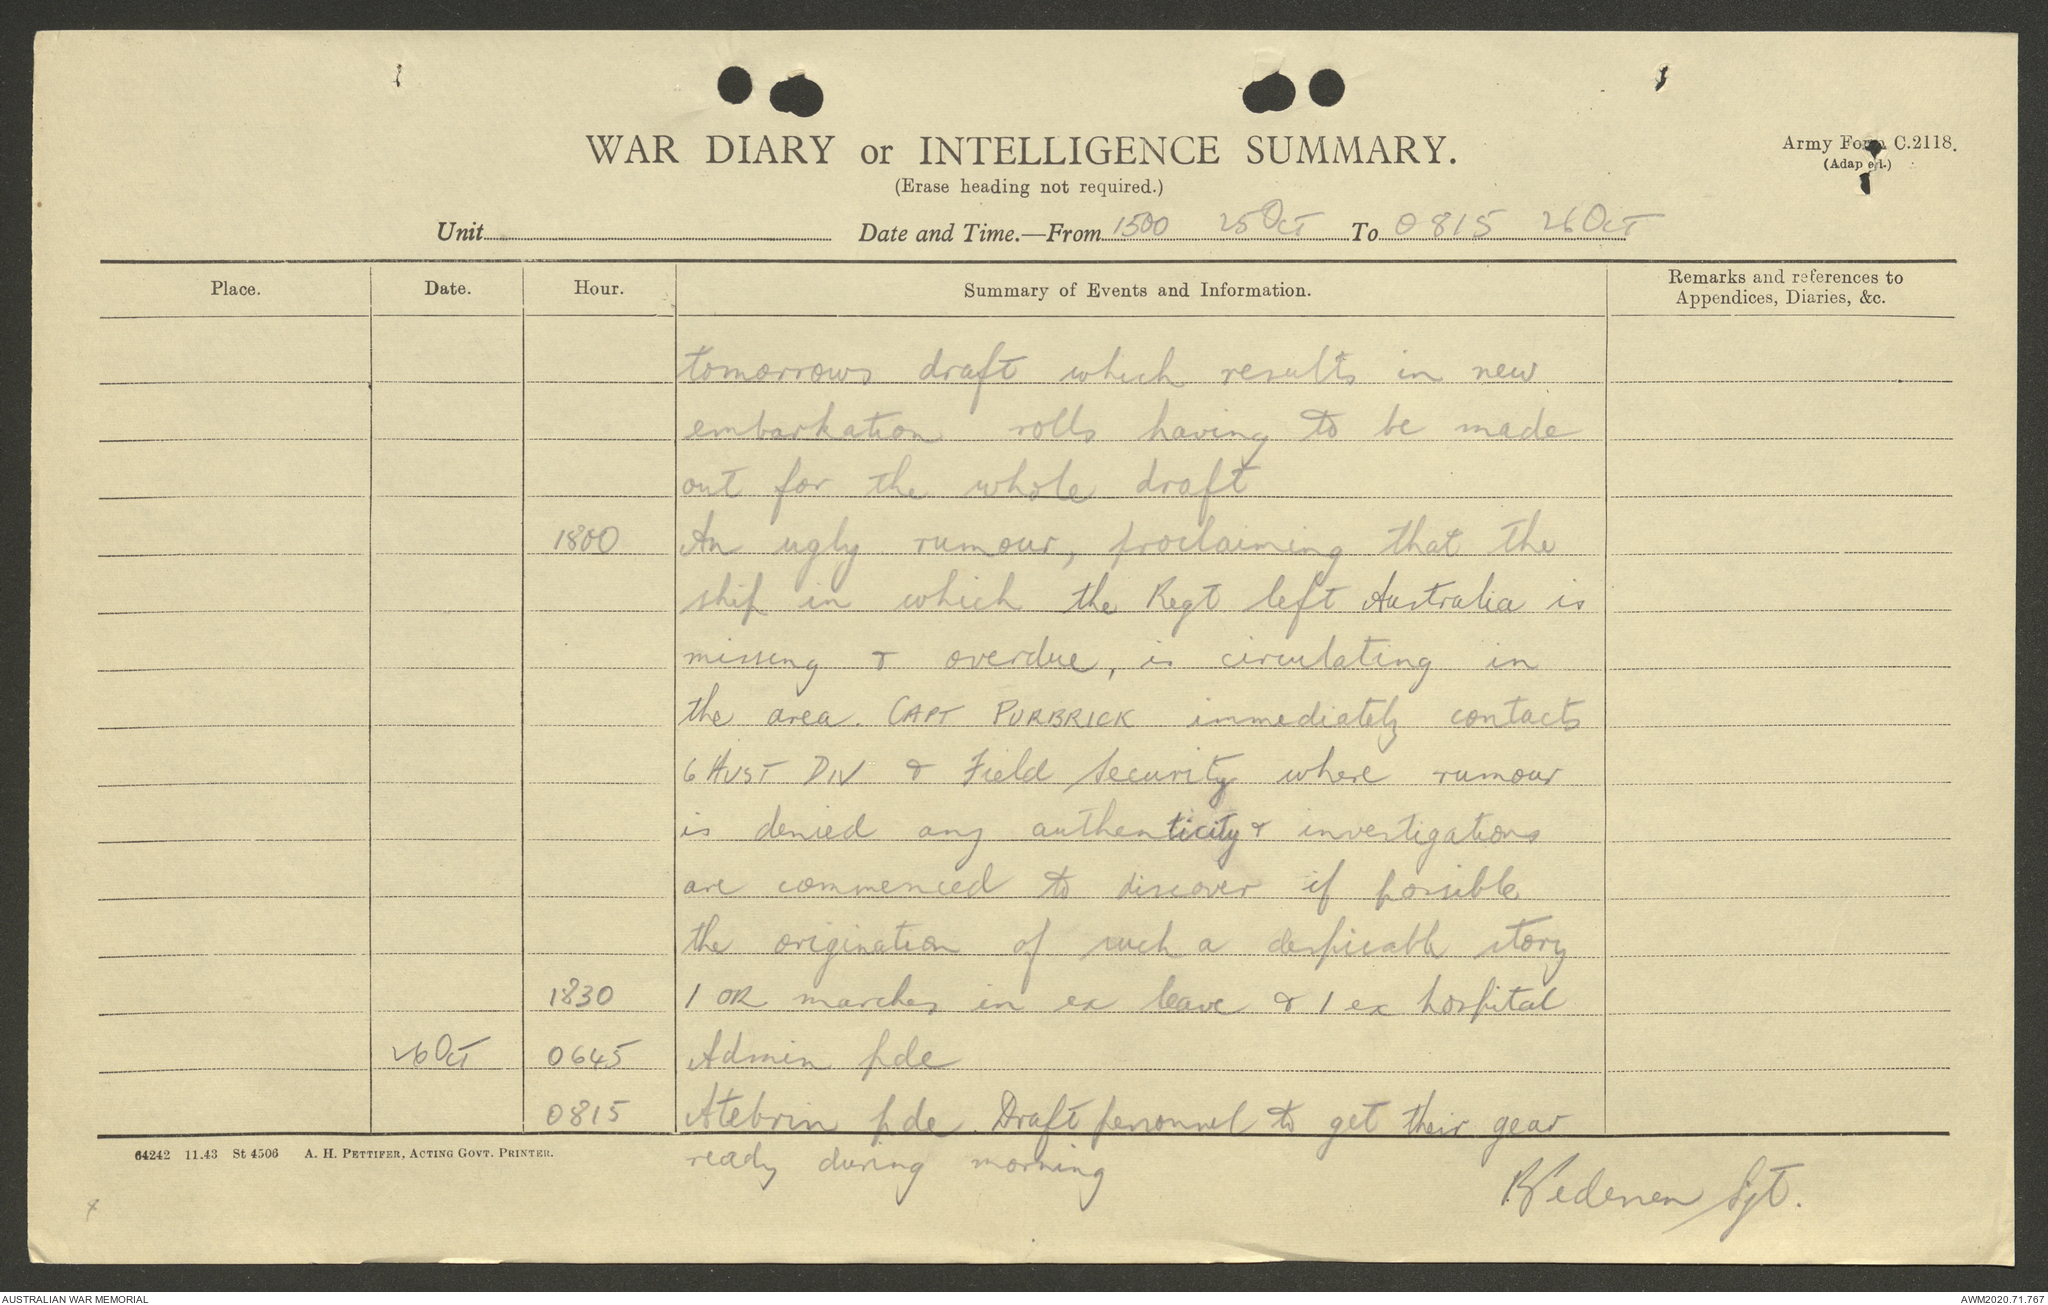 WAR DIARY or INTELLIGENCE SUMMARY.
Army Form C.2118.
(Adapted.)
(Erase heading not required.)
Unit Date and Time.—From 1500 25 Oct To 0815 26 Oct
Place. Date. Hour. Summary of Events and Information. Remarks and references to Appendices, Diaries, &c.
tomorrows draft which results in new
embarkation rolls having to be made
out for the whole draft
1800 An ugly rumour, proclaiming that the
ship in which the Regt left Australia is
missing & overdue, is circulating in
the area. CAPT PURBRICK immediately contacts
6 AUST DIV & Field Security where rumour
is denied any authenticity & investigations
are commenced to discover if possible
the origination of such a despicable story
1830 1 OR marches in ex leave & 1 ex hospital
26 Oct 0645 Admin pde
0815 Atebrin pde. Draft personnel to get their gear
ready during morning
64242 11.43 St 4506 A. H. PETTIFER, ACTING GOVT. PRINTER.
Sgt.
AUSTRALIAN WAR MEMORIAL
AWM2020.71.767